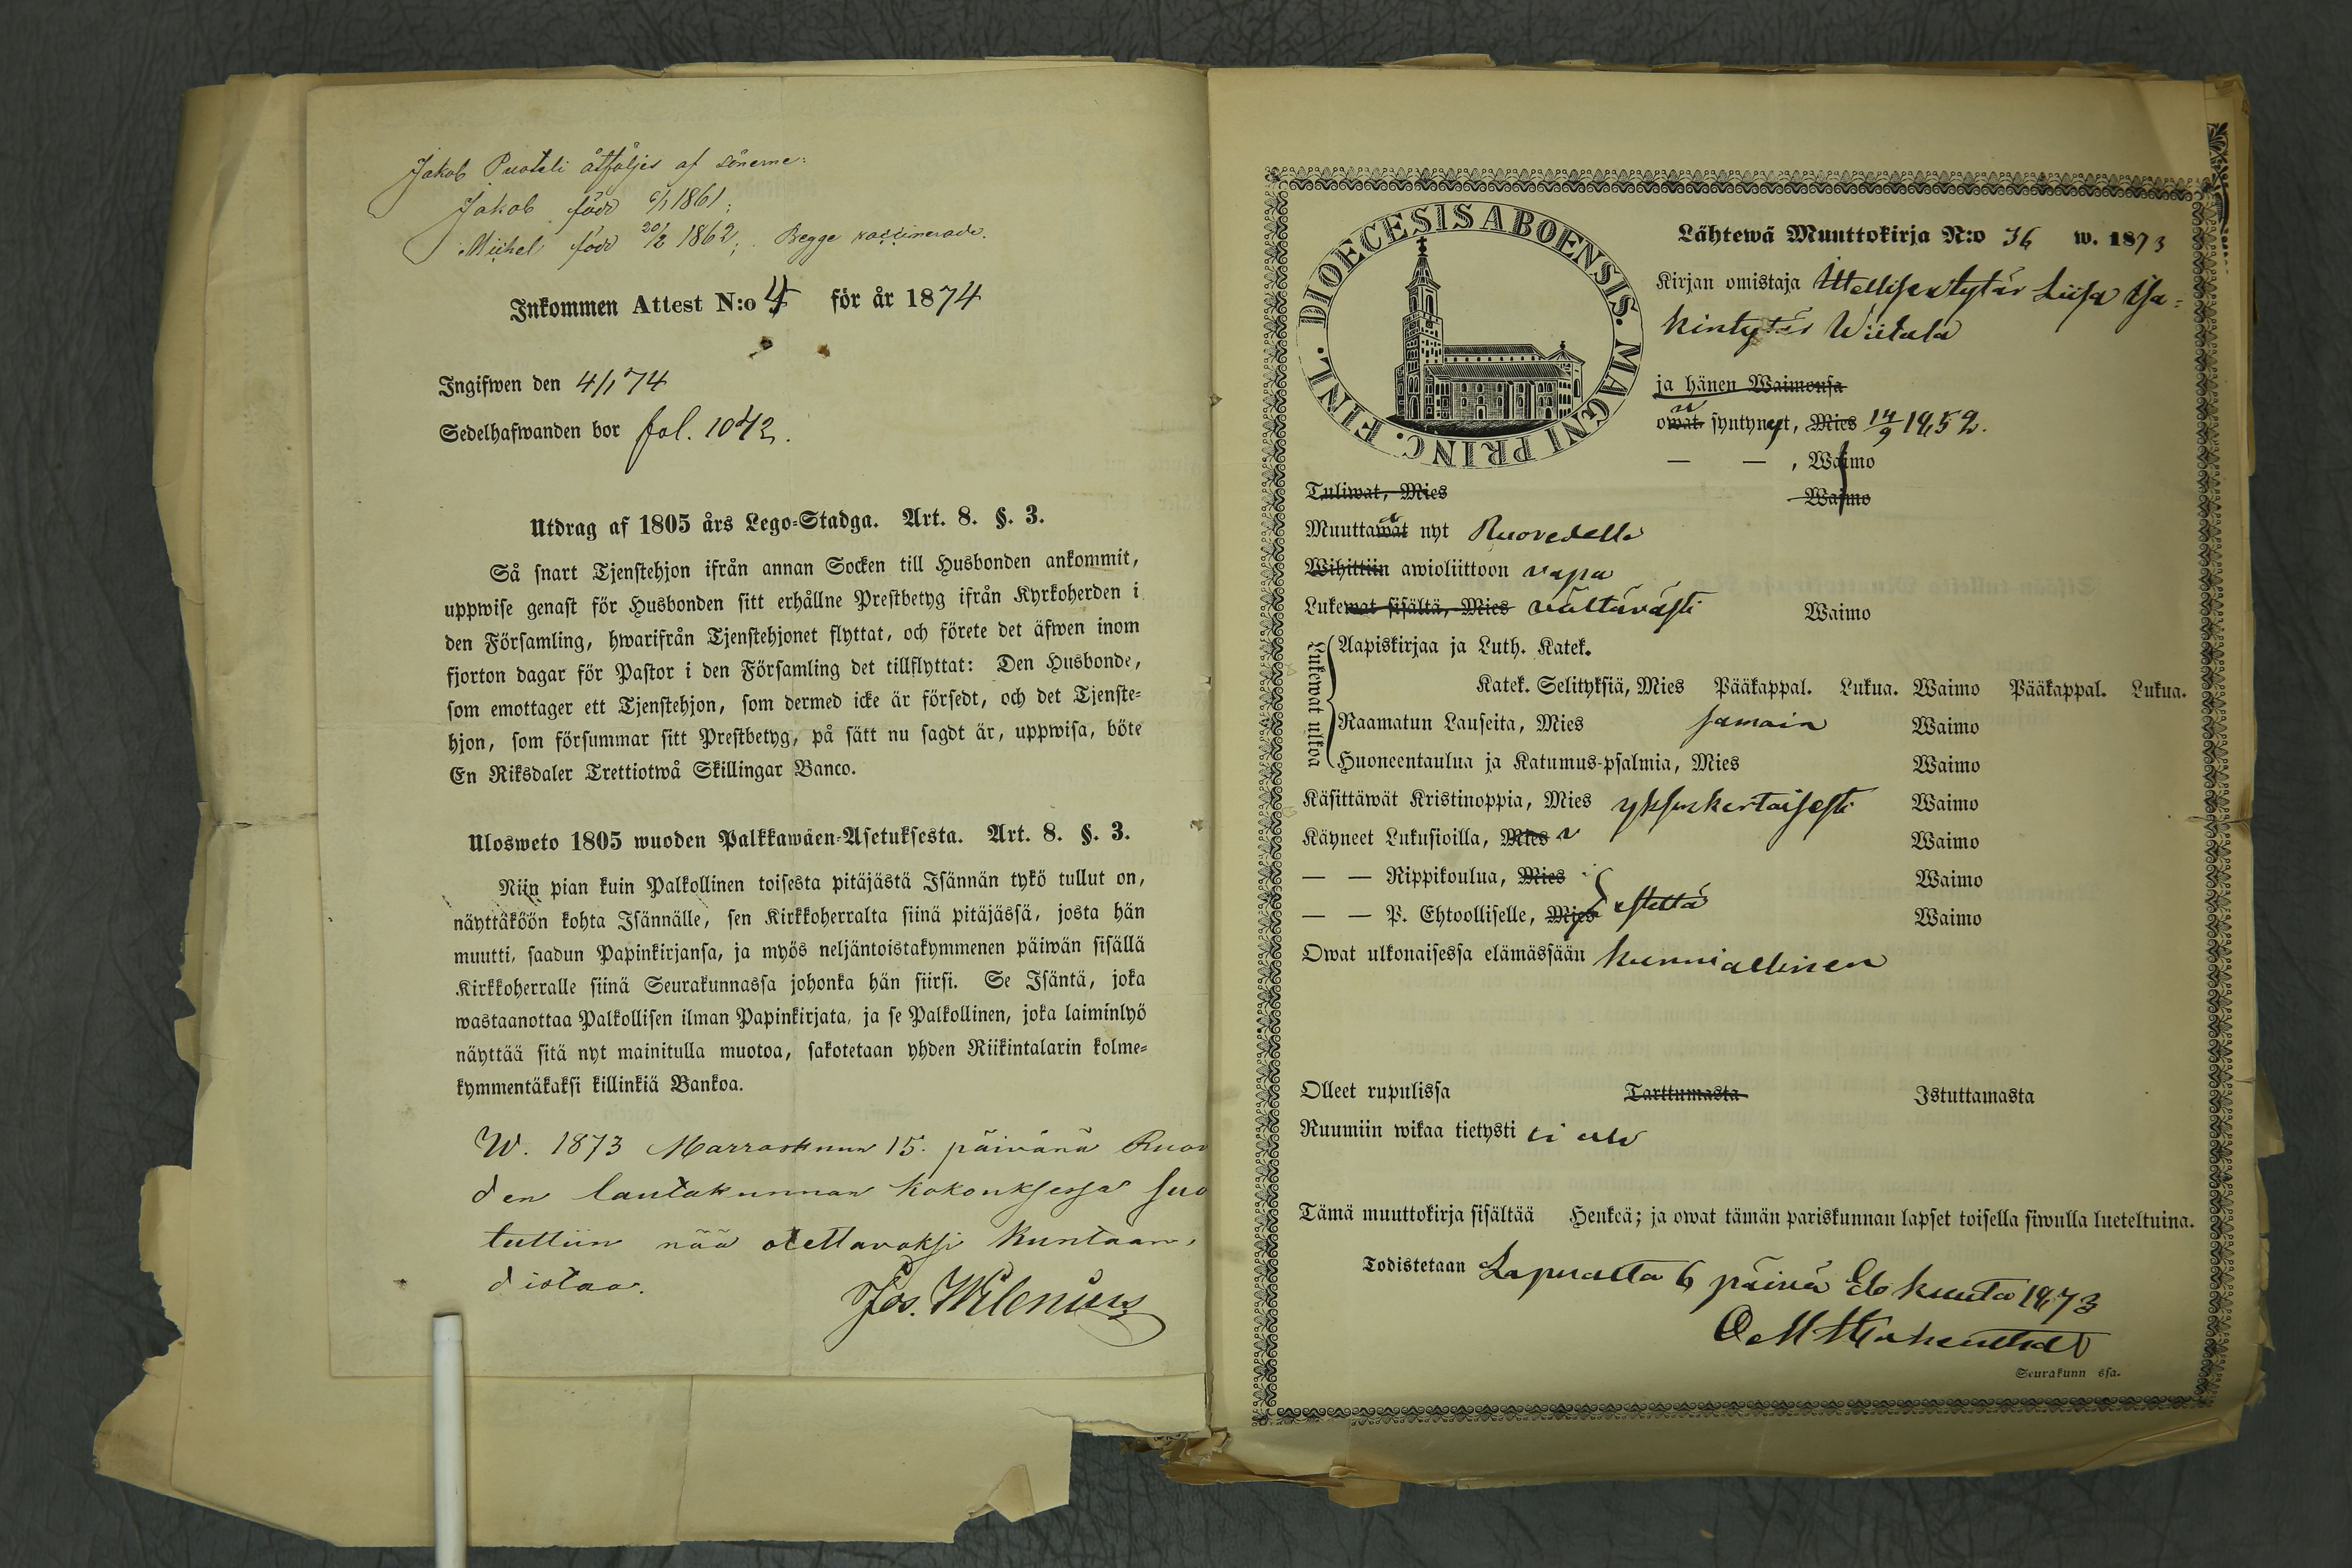 Jakob Puoteli åtföljes af sönerne:
Jakob född 6/1 1861;
Michel född 20/2 1862; Begge vaccinerade.
Inkommen Attest N:o 4 för år 1874
Ingifwen den 4/1 74
Sedelhafwanden bor fol. 1042.
Utdrag af 1805 års Lego-Stadga. Art. 8. §. 3.
Så snart Tjenstehjon ifrån annan Socken till Husbonden ankommit,
uppwise genast för Husbonden sitt erhållne Prestbetyg ifrån Kyrkoherden i
den Församling, hwarifrån Tjenstehjonet flyttat, och förete det äfwen inom
fjorton dagar för Pastor i den Församling det tillflyttat: Den Husbonde,
som emottager ett Tjenstehjon, som dermed icke är försedt, och det Tjenste-
hjon, som försummar sitt Prestbetyg, på sätt nu sagdt är, uppwisa, böte
En Riksdaler Trettiotwå Skillingar Banco.
Ulosweto 1805 wuoden Palkkawäen-Asetuksesta. Art. 8. §. 3.
Niin pian kuin Palkollinen toisesta pitäjästä Isännän tykö tullut on,
näyttäköön kohta Isännälle, sen Kirkkoherralta siinä pitäjässä, josta hän
muutti, saadun Papinkirjansa, ja myös neljäntoistakymmenen päiwän sisällä
Kirkkoherralle siinä Seurakunnassa johonka hän siirsi. Se Isäntä, joka
wastaanottaa Palkollisen ilman Papinkirjata, ja se Palkollinen, joka laiminlyö
näyttää sitä nyt mainitulla muotoa, sakotetaan yhden Riikintalarin kolme-
kymmentäkaksi killinkiä Bankoa.
W. 1873 Marraskuun 15. päivänä Ruov
den lautakunnan kokouksessa suo
tuttiin nää otettavaksi kuntaan,
distaa.
Jos. Wilenius
DIOECESIS ABOENSIS. MAGNI PRINC. FINL.
Lähtewä Muuttokirja N:o 36 w. 1873
Kirjan omistaja Itsellisentytär Liisa Isa-
kintytär Wiitala
ja hänen Waimonsa
owat syntynyt, Mies 14/9 1852.
— — , Waimo
Tuliwat, Mies Waimo
Muuttawat nyt Ruovedelle
Wihittiin awioliittoon vapa
Lukewat sisältä, Mies välttävästi Waimo
Lukewat ulkoa
Aapiskirjaa ja Luth. Katek.
Katek. Selityksiä, Mies Pääkappal. Lukua. Waimo Pääkappal. Lukua.
Raamatun Lauseita, Mies samain Waimo
Huoneentaulua ja Katumus-psalmia, Mies Waimo
Käsittäwät Kristinoppia, Mies yksinkertaisesti Waimo
Käyneet Lukusioilla, Mies Waimo
— — Rippikoulua, Mies Waimo
— — P. Ehtoolliselle, Mies Waimo
Owat ulkonaisessa elämässään kunniallinen
Olleet rupulissa Tarttumasta Istuttamasta
Ruumiin wikaa tietysti ei ole
Tämä muuttokirja sisältää Henkeä; ja owat tämän pariskunnan lapset toisella siwulla lueteltuina.
Todistetaan Lapualta 6 päivä Elokuuta 1873
Seurakunn ssa.